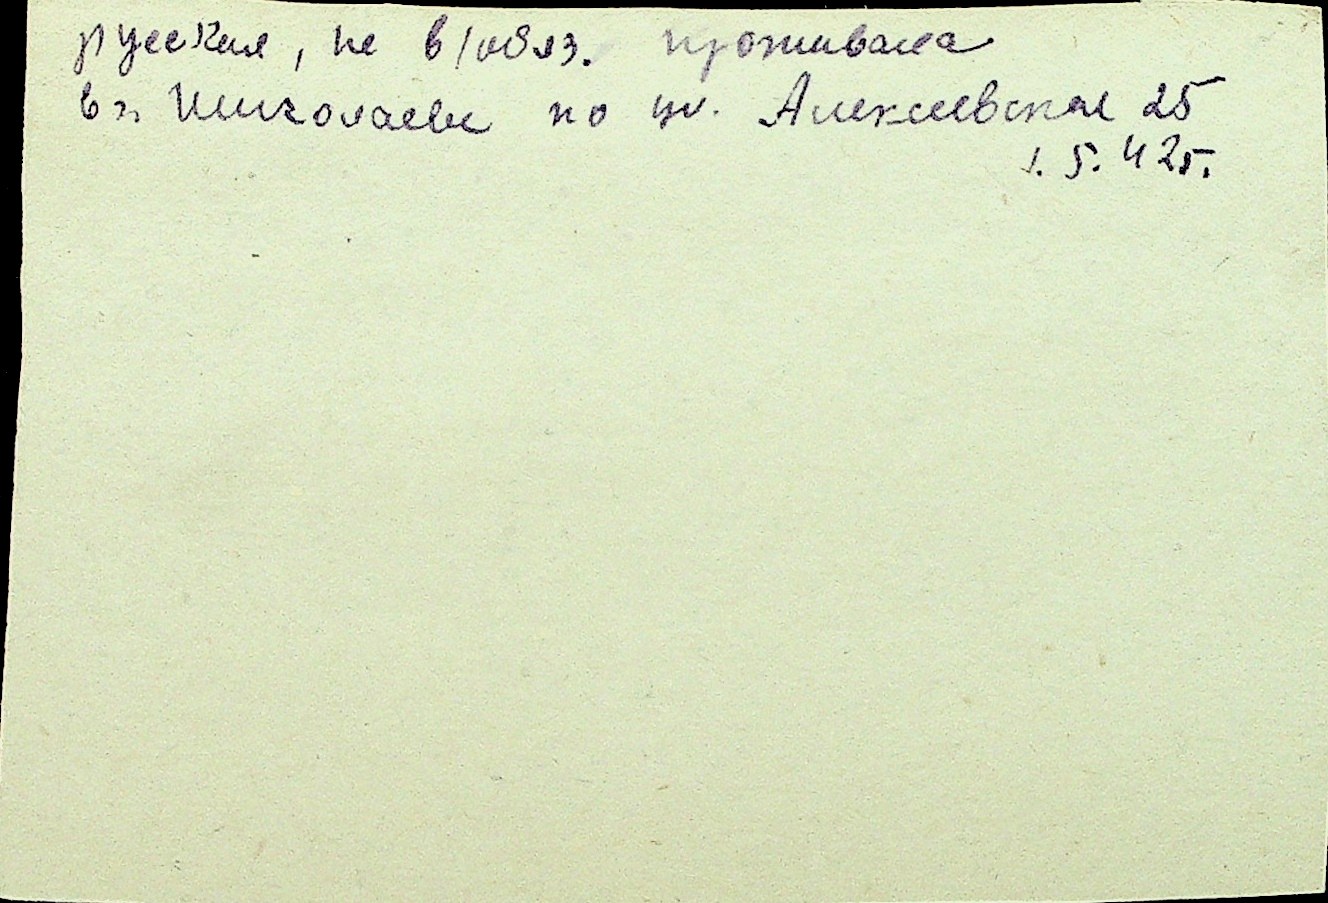 русская, не в/обяз. проживала
в г. Николаеве по ул. Алексеевской 25
1. 5. 42 г.